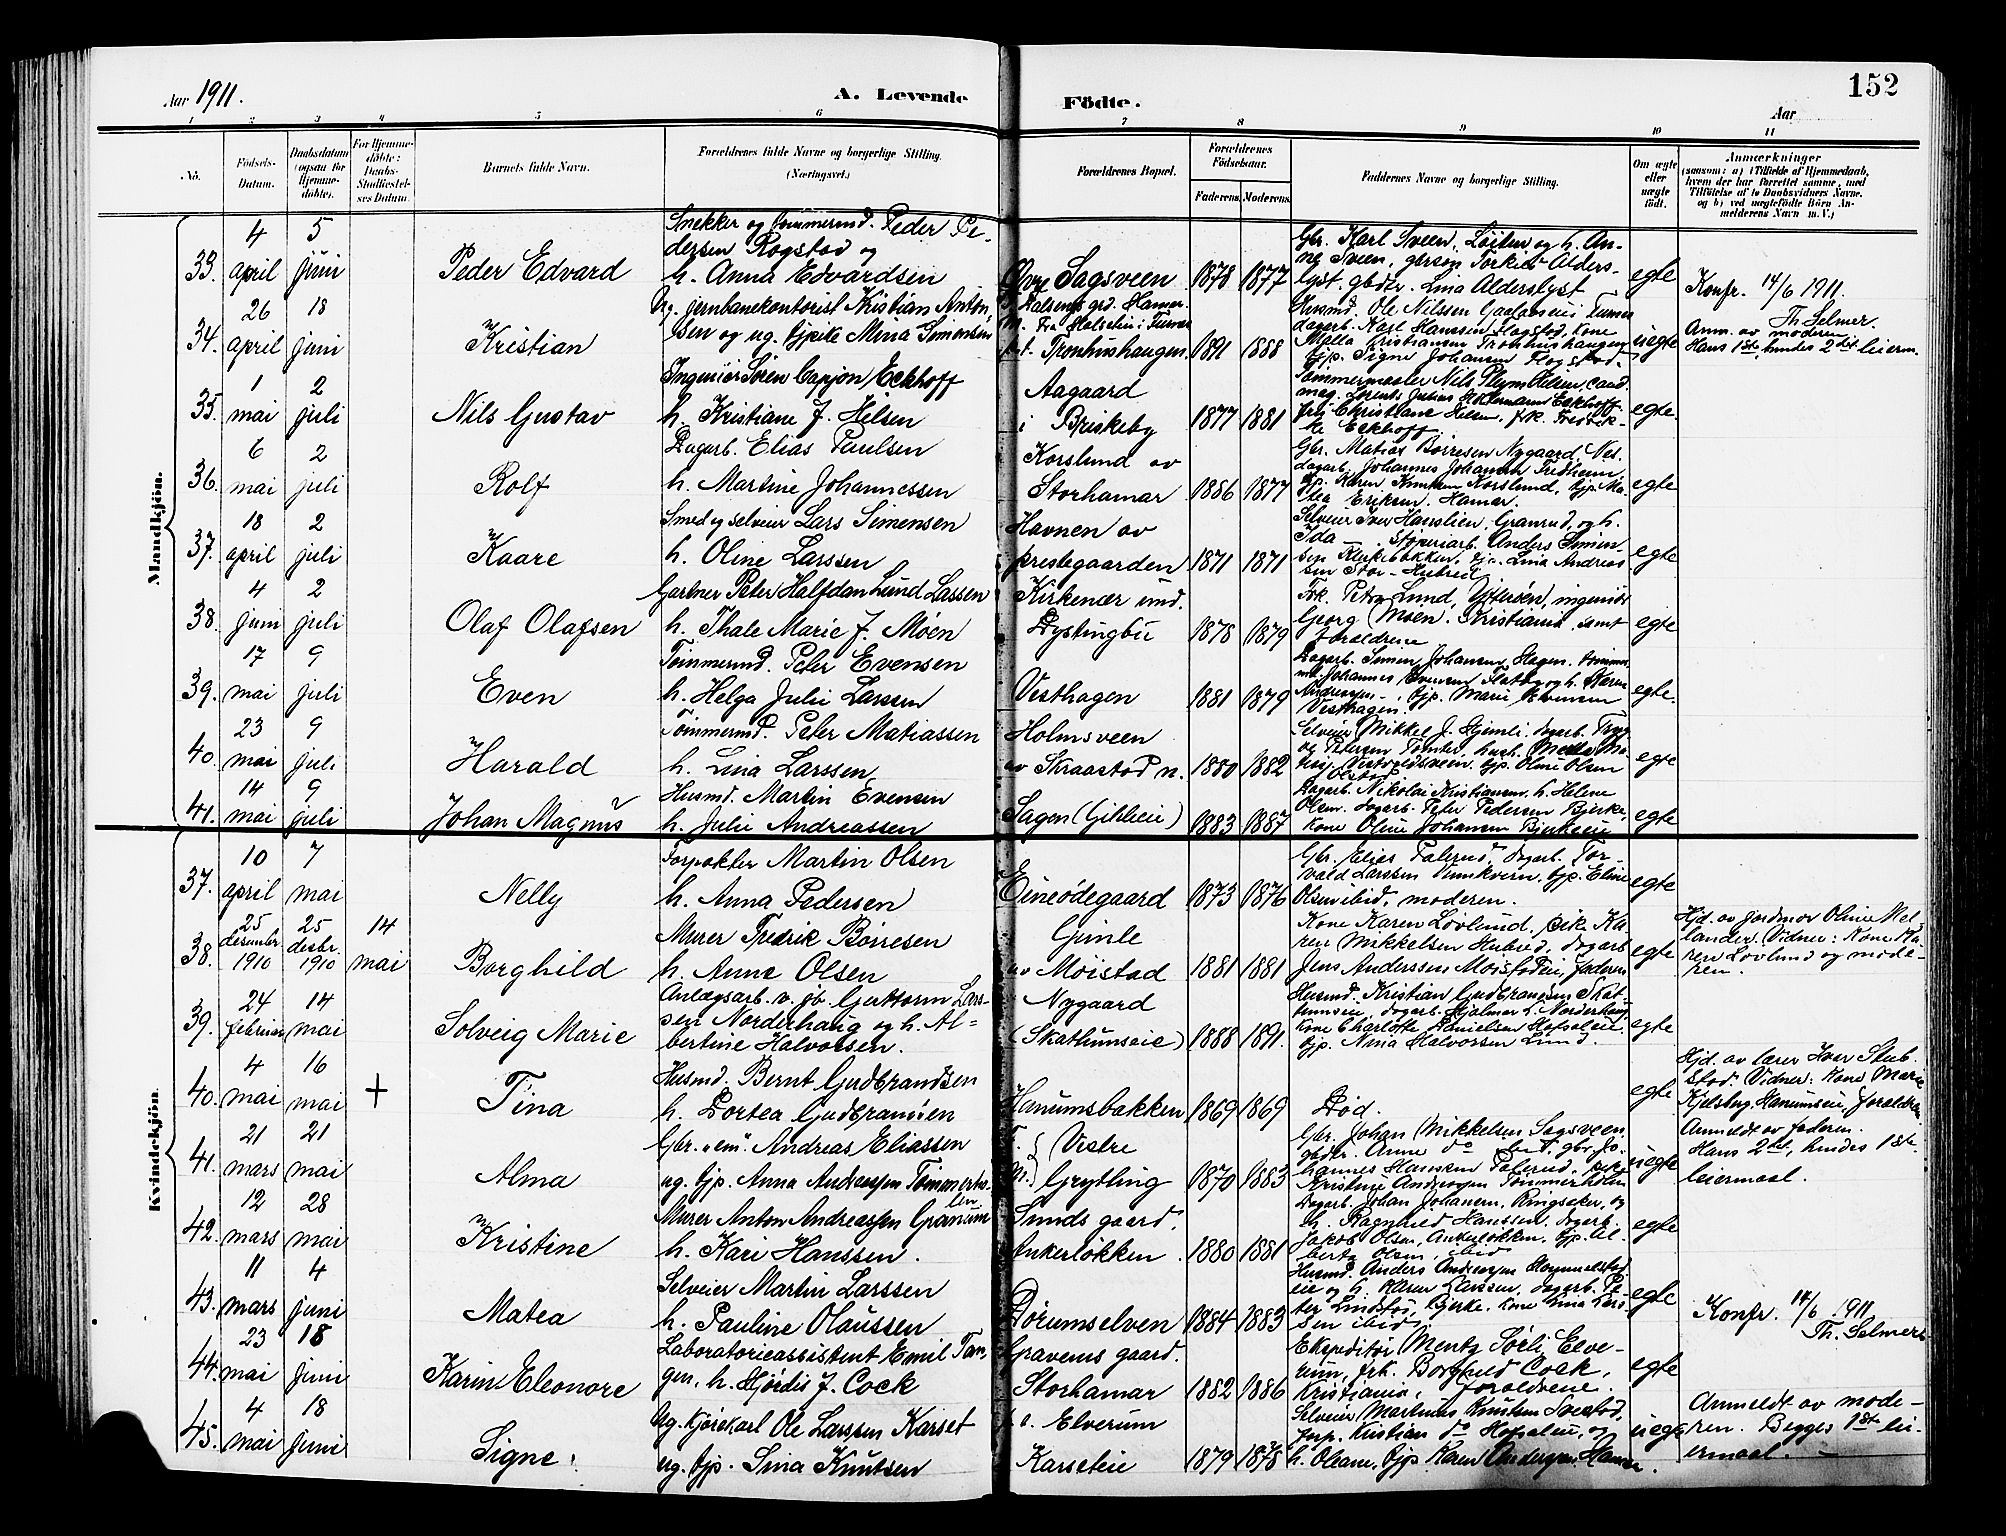 Aar 1911.
A. Levende
Födte.
Aar
152
1 2 3 4 5 6 7 8 9 10 11
No.
Födsels-
Datum.
Daabsdatum
(ogsaa for
Hjemme-
döbte).
For Hjemme-
döbte:
Daabs-
Stadfæstel-
ses Datum.
Barnets fulde Navn.
Forældrenes fulde Navne og borgerlige Stilling.
(Næringsvei.)
Forældrenes Bopæl.
Forældrenes
Födselsaar.
Faderens.
Moderens.
Faddernes Navne og borgerlige Stilling.
Om ægte
eller
uægte
födt.
Anmærkninger
(saasom: a) i Tilfælde af Hjemmedaab,
hvem der har forrettet samme, med
Tilföielse af to Daabsvidners Navne.
og b) ved uægtefödte Börn An-
melderens Navn m. V.)
Mandkjön.
33.
4 april
5 juni
Peder Edvard
Snekker og tømmermd. Peder Pe-
dersen Rogstad og
h. Anna Edvardsen
Øvre Sagsveen
1878 1877
Gbr. Karl Sveen, Løiten og h. An-
ne Sveen, Alders-
lyst, gbdtr. Lina Alderslyst
egte
Konfr. 14/6 1911.
Th. Selmer.
34.
26 april
18 juni
Kristian
Ug. jernbanekontorist Kristian Anton-
sen og ug. tjpike Mina Simonsen
Tronhushaugen
1891 1888
Husmd. Ole Nilssen
dagarb. Karl Hanssen Flagstad, kone
Tronhushaugen
tjp. Signe Johansen Flagstad
uegte
Anm. av moderen
Hans 1ste, hendes 2det leierm.
35.
1 mai
2 juli
Nils Gustav
Ingeniør Søren Capjon Eckhoff
h. Kristiane J. Hilsen
Aagaard
i Briskeby
1877 1881
Tømmermester Nils Hilsen, cand.
mag. Lorents Eckhoff,
fru Christiane Hilsen, frk. Fredrik-
ke Eckhoff.
egte
36.
6 mai
2 juli
Rolf
Dagarb. Elias Paulsen
h. Martine Johannessen
Korslund av
Storhamar
1886 1877
Gbr. Matias Børresen Nygaard, Ves.
dagarb. Johannes Johansen Fredheim
tjp. Karen Korslund, tjp. Ma-
tea Eriksen, Hamar.
egte
37.
18 april
2 juli
Kaare
Smed og selveier Lars Simensen
h. Oline Larssen
Havnen av
prestegaarden
1871 1871
Selveier Iver Hanslien, Granrud, og h.
Ida — Anders Simen-
sen Klukebakken, tjp. Lina Andreas
sen Stor-Hubred
egte
38.
4 juni
2 juli
Olaf Olafsen
Gartner Peter Halfdan Lund Lassen
h. Thale Marie J. Moen
Kirkenær und.
Dystingbu
1878 1879
Frk. Petra Lund, Ytterøen, ingeniør
Georg Moen, Kristiania, samt
foraldrene
egte
39.
17 mai
9 juli
Even
Tømmermd. Peter Evensen
h. Helga Julie Larssen
Vesthagen
1881 1879
Dagarb. Simen Johansen Hagen, tømmer
md. Johannes Evensen og h. Karen
Andersen, tjp. Marie Evensen
Vesthagen.
egte
40.
23 mai
9 juli
Harald
Tømmermd. Peter Matiassen
h. Lina Larssen
Holmsveen
av Skraastad n.
1880 1882
Selveier Mikkel J. Hjemli, dagarb. Tryg-
ve Petersen Tomter, husb.
tjp. Oline Olsen
Olstad
egte
41.
14 mai
9 juli
Johan Magnus
Husmd. Martin Evensen
h. Julie Andreassen
Sagen (Gihleie)
1883 1887
Dagarb. Nikolai Kristiansen, h. Helene
Olsen, dagarb. Peter Pedersen Bjerke,
kone Oline Johansen Bjerkeeie
egte
Kvindekjön.
37.
10 april
7 mai
Nelly
Forpakter Martin Olsen
h. Anna Pedersen
Eineødegaard
1873 1876
Gbr. Elias Falerud, dagarb. Tor-
vald Larssen, tjp. Eline
Olsen ibid, moderen.
egte
38.
25 desembr. 1910
25 desbr. 1910
14 mai
Borghild
Murer Fredrik Børresen
h. Anne Olsen
Gimle
av Møistad
1881 1881
Kone Karen Løvlund, pike Ka-
ren Mikkelsen Hubred, dagarb
Jens Anderssen Møistadeie, faderen
egte
Hjd. av jordmor Oline Mel-
lander. Vidner: Kone Ka-
ren Løvlund og mode-
ren.
39.
24 februar
14 mai
Solveig Marie
Anlægsarb. v. jb. Guttorm Lars-
sen Norderhaug og h. Al-
bertine Halvorsen.
Nygaard
(Skattumseie)
1888 1891
Husmd. Kristian Gudbrandsen Skat-
tumseie, dagarb. Hjalmar L. Norderhaug,
kone Charlotte Danielsen Hofsaleie,
tjp. Anna Halvorsen Lund.
egte
40.
4 mai
16 mai
+
Tina
Husmd. Bernt Gudbrandsen
h. Dortea Gudbrandsen
Hanumsbakken
1869 1869
Død.
egte
Hjd. av lærer Iver Stub-
stad. Vidner: Kone Marie
Kjelsberg, Hanumseie, foraldren
41.
21 mars
21 mai
Alma
Gbr. "em". Andreas Eliassen
ug. tjp. Anna Andreassen Tømmerho-
len
F.
M.
Vestre
Grytling
1870 1883
Gbr. Johan Mikkelsen Sagsveen
gbdtr. Anne do ibid, gbr. Jo-
hannes Hanssen Falerud, pike
Kristine Andreassen Tømmerholen
uegte
Anmeldt av faderen.
Hans 2det, hendes 1ste
leiermaal.
42.
12 mars
28 mai
Kristine
Murer Anton Andreassen Granum
h. Kari Hanssen.
Lunds gaard.
Ankerløkken
1880 1881
Dagarb. Johan Johansen, Ringsaker, og
h. Ragnhild Hanssen, dagarb.
Jakob Olsen, Ankerløkken, tjp. Al-
berta Olsen, ibid
egte
43.
11 mars
4 juni
Matea
Selveier Martin Larssen
h. Pauline Olaussen
Dørumselven
1884 1883
Husmd. Anders Andersen Hommelstad
eie og h. Karen Larssen, dagarb. Pe-
ter Lindstad, Bjerke, kone Lina Lars-
sen ibid.
egte
Konfr. 14/6 1911
Th. Selmer
44.
23 mai
18 juni
Karin Eleonore
Laboratorieassistent Emil Tan-
gen, h. Hjørdis J. Cock
Gravens gaard.
Storhamar
1882 1886
Ekspeditør Mentz Sørli, Elve-
rum, frk. Borghild Cock,
Kristiania, foraldrene.
egte
45.
4 mai
18 juni
Signe
Ug. kjørekarl Ole Larssen Karset
ug. tjp. Lina Knutsen
f. v. Elverum
Karseteie
1879 1878
Selveier Martinus Knutsen Svestad,
forp. Kristian do Hofsaleie, og
h. Oleane, tjp. Karen Andersen, Hamar.
uegte
Anmeldt av mode-
ren. Begges 1ste lei-
ermaal.